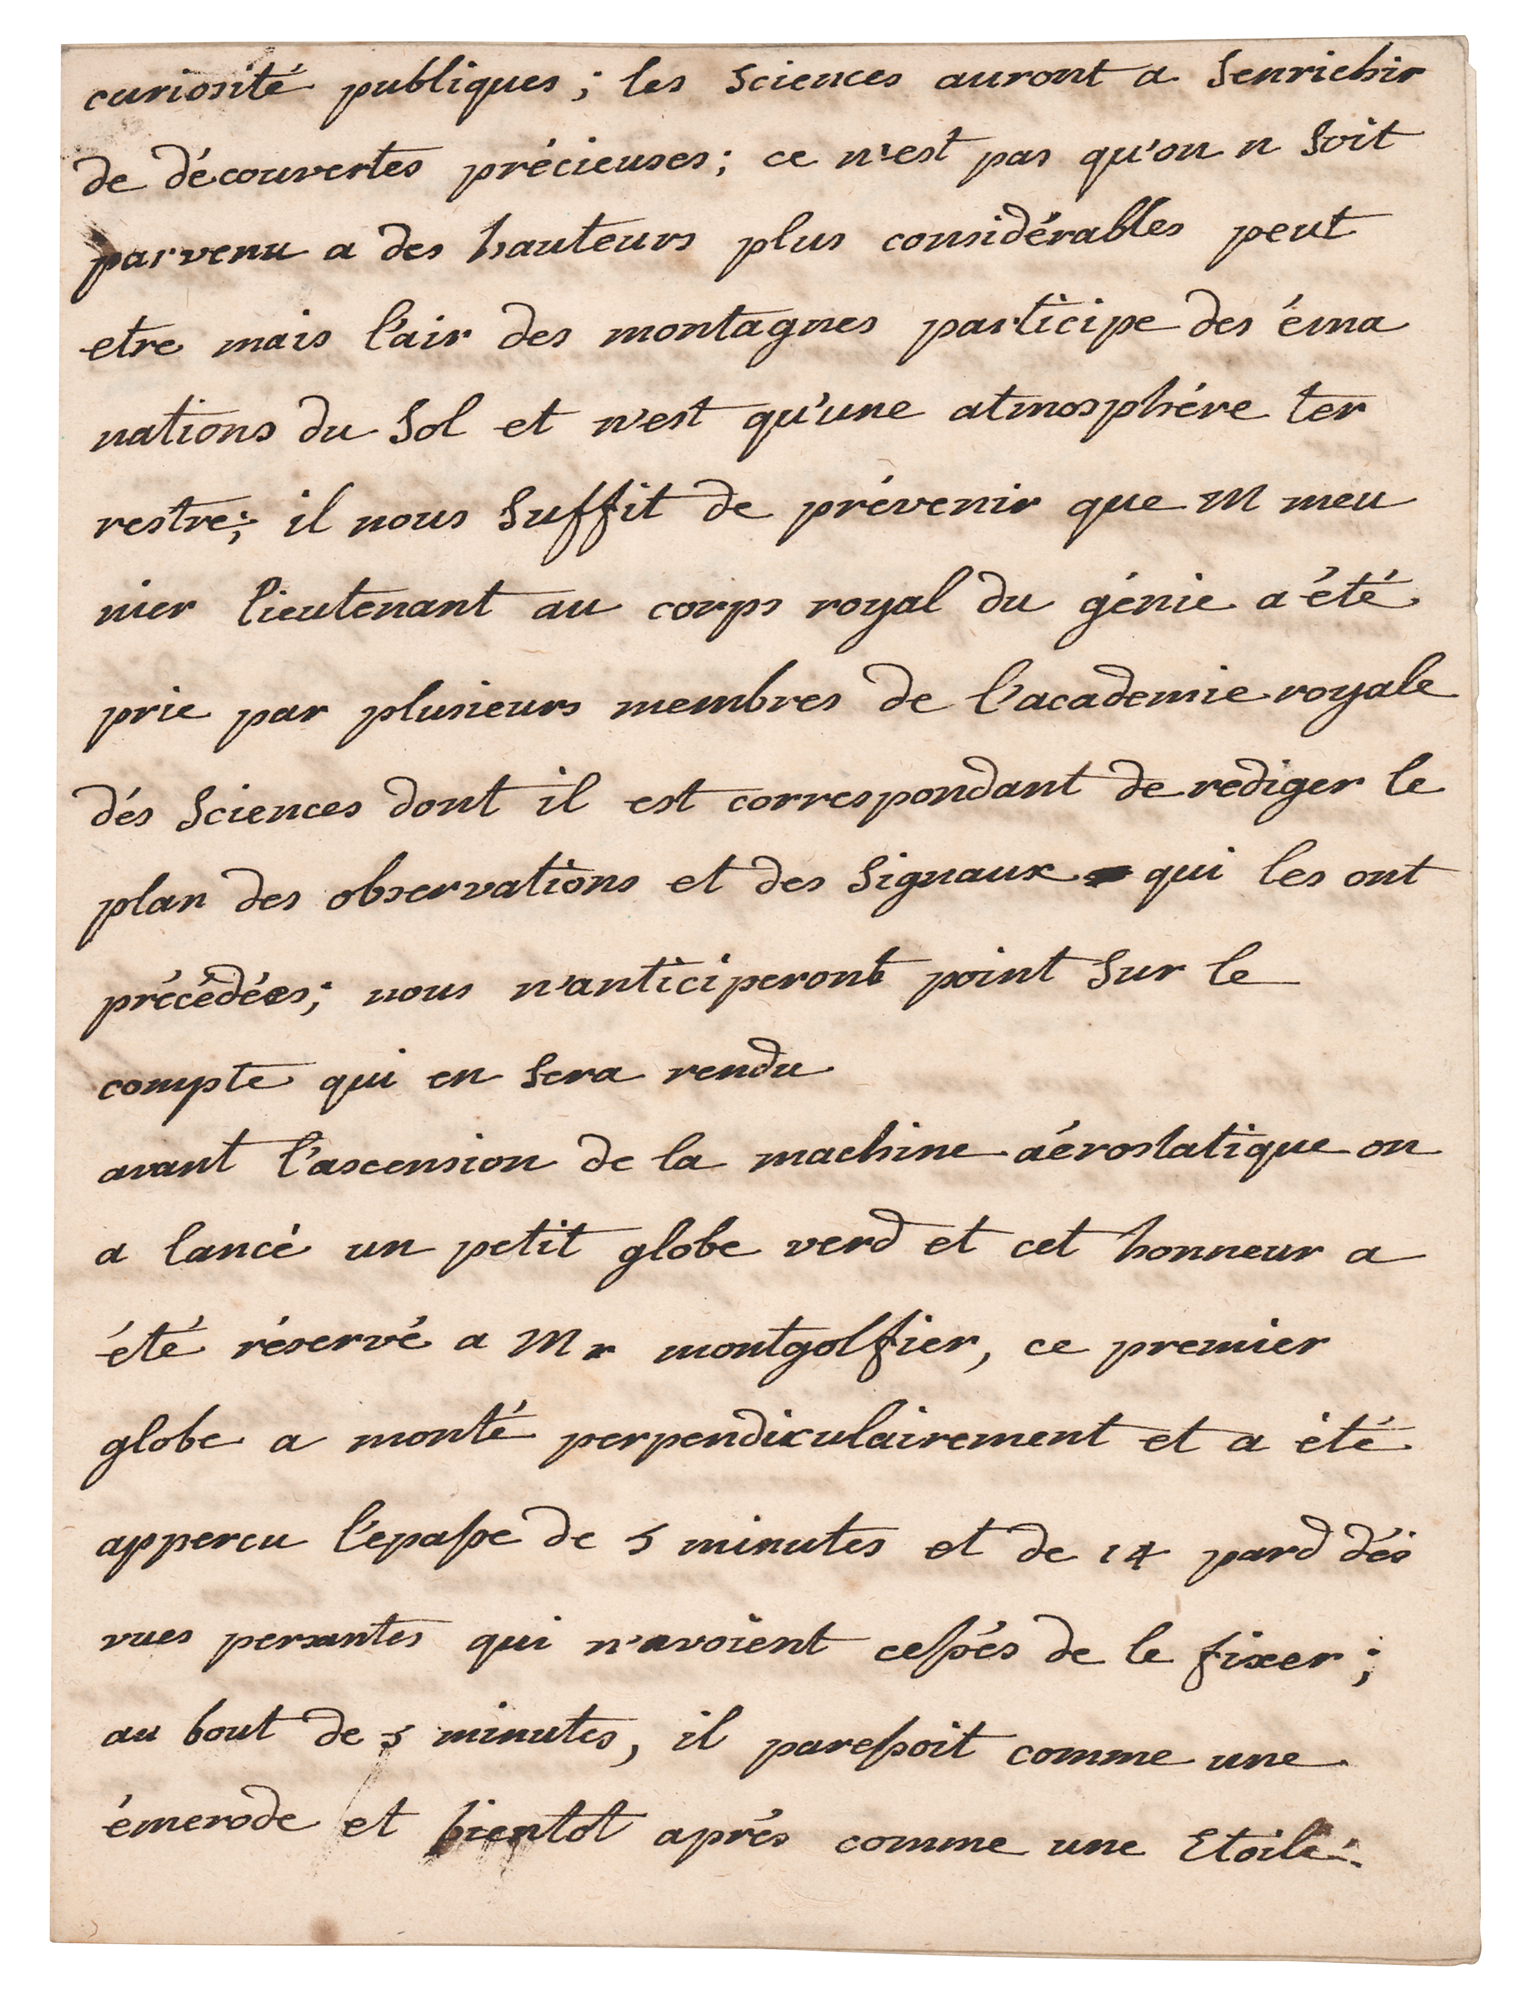 curiosité publiques; les sciences auront a senrichir
de découvertes précieuses; ce n'est pas qu'on n soit
parvenu a des hauteurs plus considérables peut
etre mais l'air des montagnes participe des éma
nations du sol et n'est qu'une atmosphére ter
restre; il nous suffit de prévenir que M meu
nier lieutenant au corps royal du génie a été
prie par plusieurs membres de l'academie royale
dés sciences dont il est correspondant de rediger le
plan des observations et des signaux qui les ont
précédées; nous n'anticiperont point sur le
compte qui en sera rendu
avant l'ascension de la machine aérostatique on
a lancé un petit globe verd et cet honneur a
été réservé a Mr montgolfier, ce premier
globe a monté perpendiculairement et a été
appercu l'epaſse de 5 minutes et de 14 pard dés
vues persantes qui n'avoient ceſsés de le fixer;
au bout de 5 minutes, il pareſsoit comme une
émerode et bientot aprés comme une Etoile.